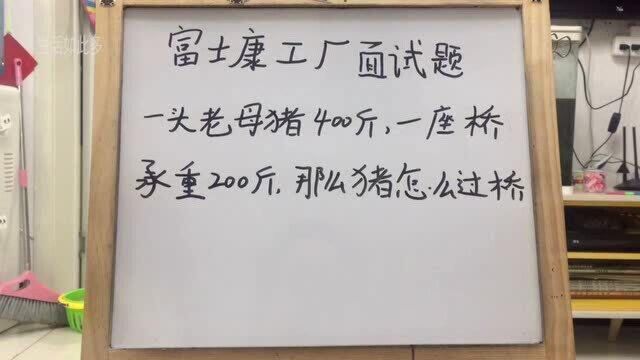 生活如此多
富士康工厂面试题
一头老母猪400斤,一座桥
承重200斤.那么猪怎么过桥